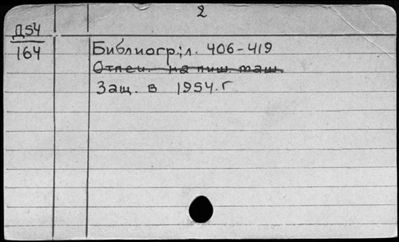 2
Д54
164
Библиогр.: л. 406-419
Отпеч. на пиш. маш.
Защ. в 1954. г